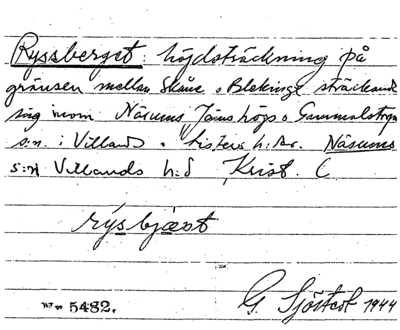 Ryssberget: höjdsträckning på
gränsen mellan Skåne o Blekinge sträckande
sig inom Näsums, Jäms högs o Gammalstorps
s:n. i Villands o Listers h:dr. Näsums
s:n Villands h:d Krist. C
rysbjæst
5482.
G. Sjöstedt 1944